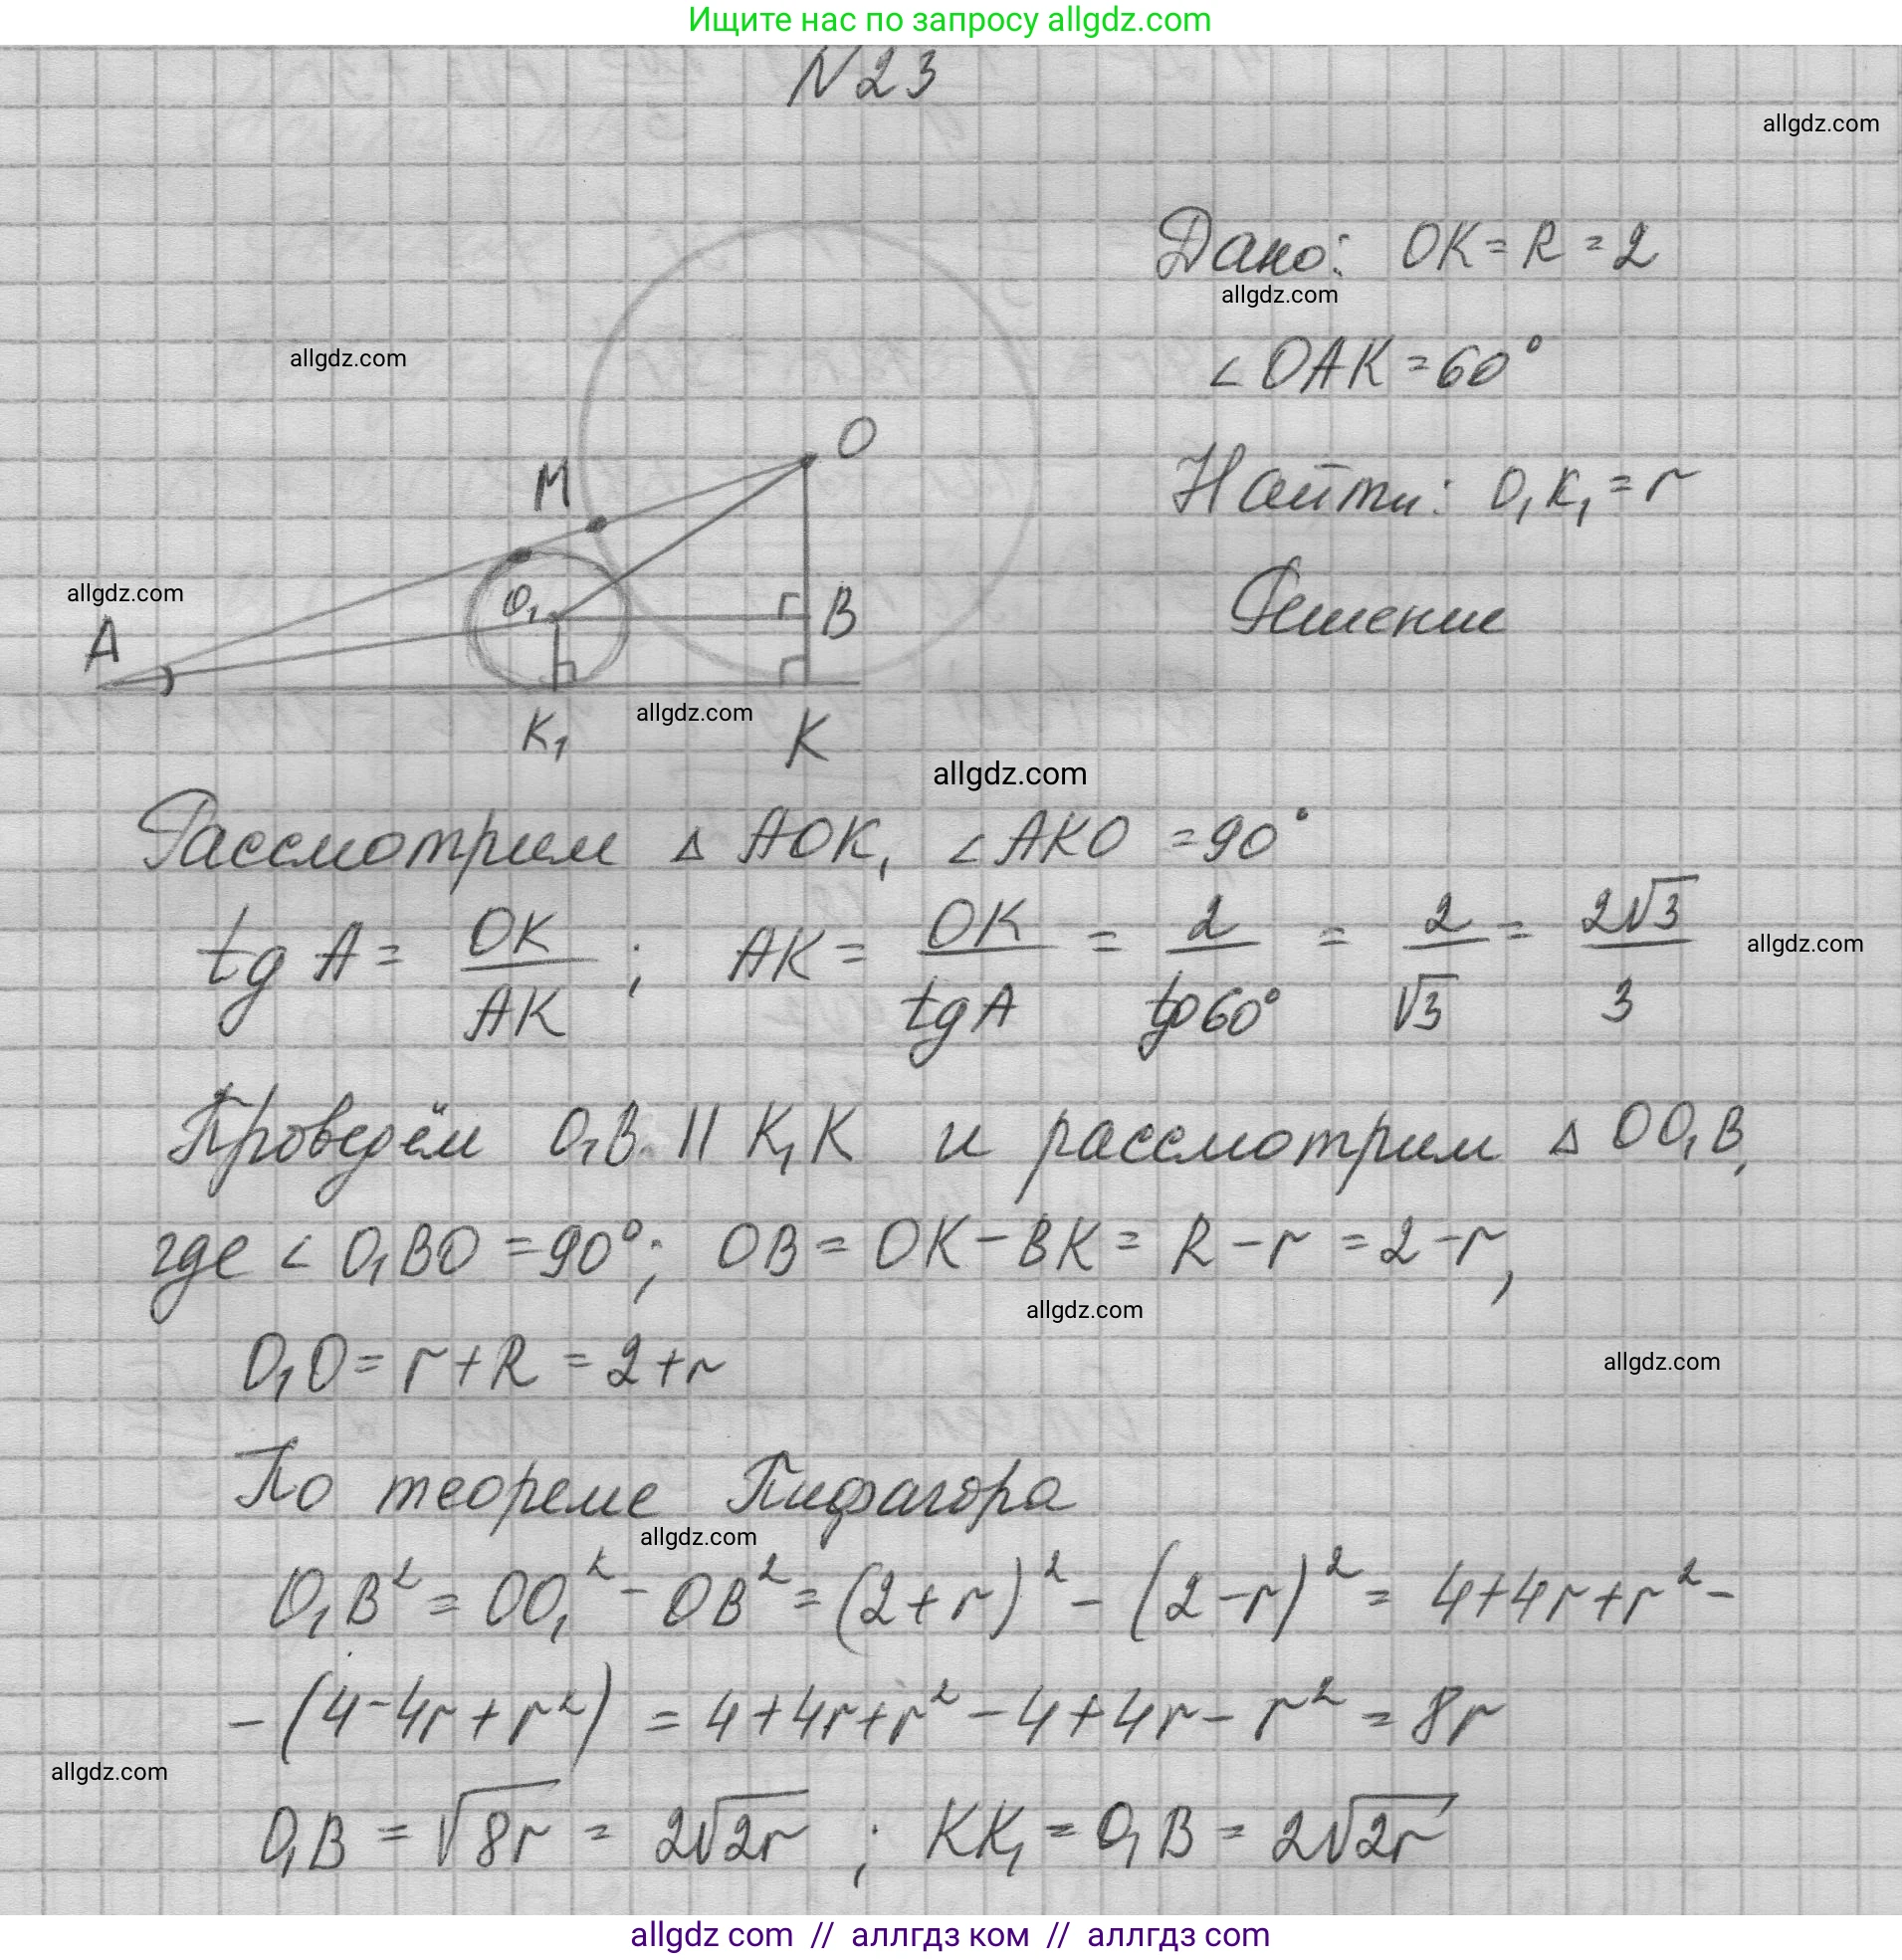 Ищите нас по запросу allgdz.com
N23
allgdz.com
Дано: OK = R = 2
allgdz.com
allgdz.com
∠OAK = 60°
O
M
Найти: O₁K₁ = r
allgdz.com
O₁
B
Решение
A
allgdz.com
K₁
K
allgdz.com
Рассмотрим △ AOK, ∠AKO = 90°
tg A = OK/AK ; AK = OK/tgA = 2/tg60° = 2/√3 = 2√3/3
allgdz.com
Проведём O₁B || K₁K и рассмотрим △ OO₁B,
где ∠ O₁BO = 90°; OB = OK - BK = R - r = 2 - r,
allgdz.com
O₁O = r + R = 2 + r
allgdz.com
По теореме Пифагора
allgdz.com
O₁B² = OO₁² - OB² = (2 + r)² - (2 - r)² = 4 + 4r + r² -
- (4 - 4r + r²) = 4 + 4r + r² - 4 + 4r - r² = 8r
allgdz.com
O₁B = √8r = 2√2r ; KK₁ = O₁B = 2√2r
allgdz com // аллгдз ком // аллгдз com